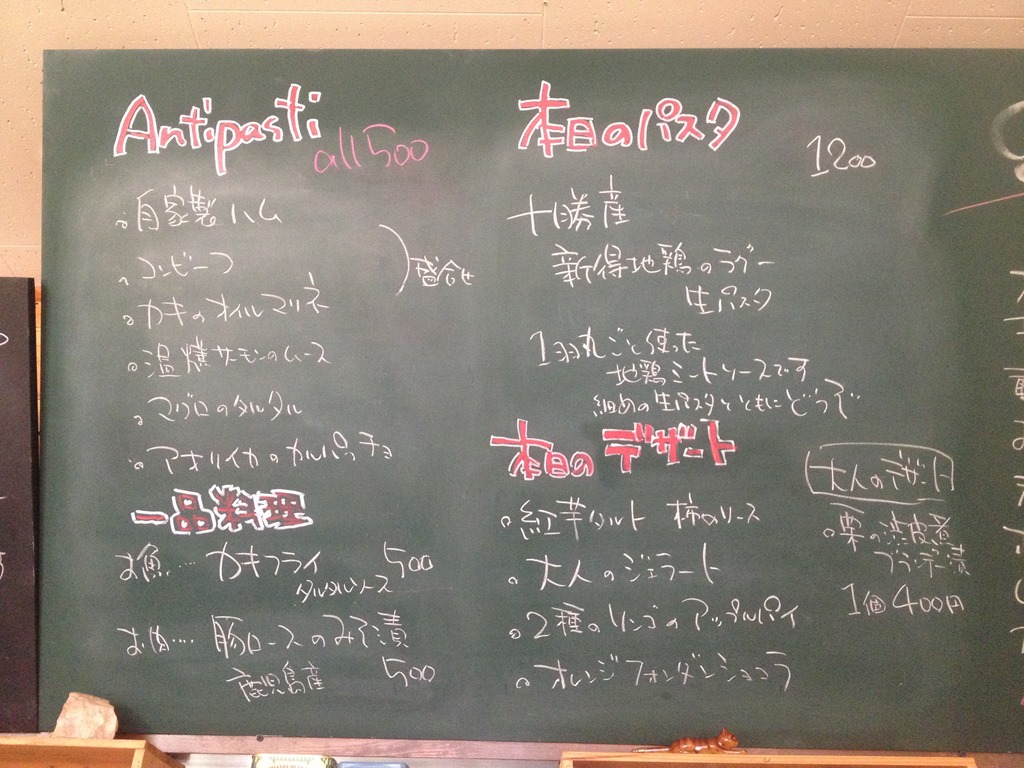 Antipasti
all 500
。自家製ハム
。コンビーフ
盛合せ
。カキのオイルマリネ
。温燻サーモンのムース
。マグロのタルタル
。アオリイカのカルパッチョ
一品料理
お魚…. カキフライ 500
タルタルソース
お肉…. 豚ロースのみそ漬
鹿児島産 500
本日のパスタ
1200
十勝産
新得地鶏のラグー
生パスタ
1羽丸ごと使った
地鶏ミートソースです
細めの生パスタとともにどうぞ
本日のデザート
。紅芋タルト 柿のソース
。大人のジェラート
。2種のリンゴのアップルパイ
。オレンジフォンダンショコラ
大人のデザート
。栗の渋皮煮
ブランデー漬
1個400円